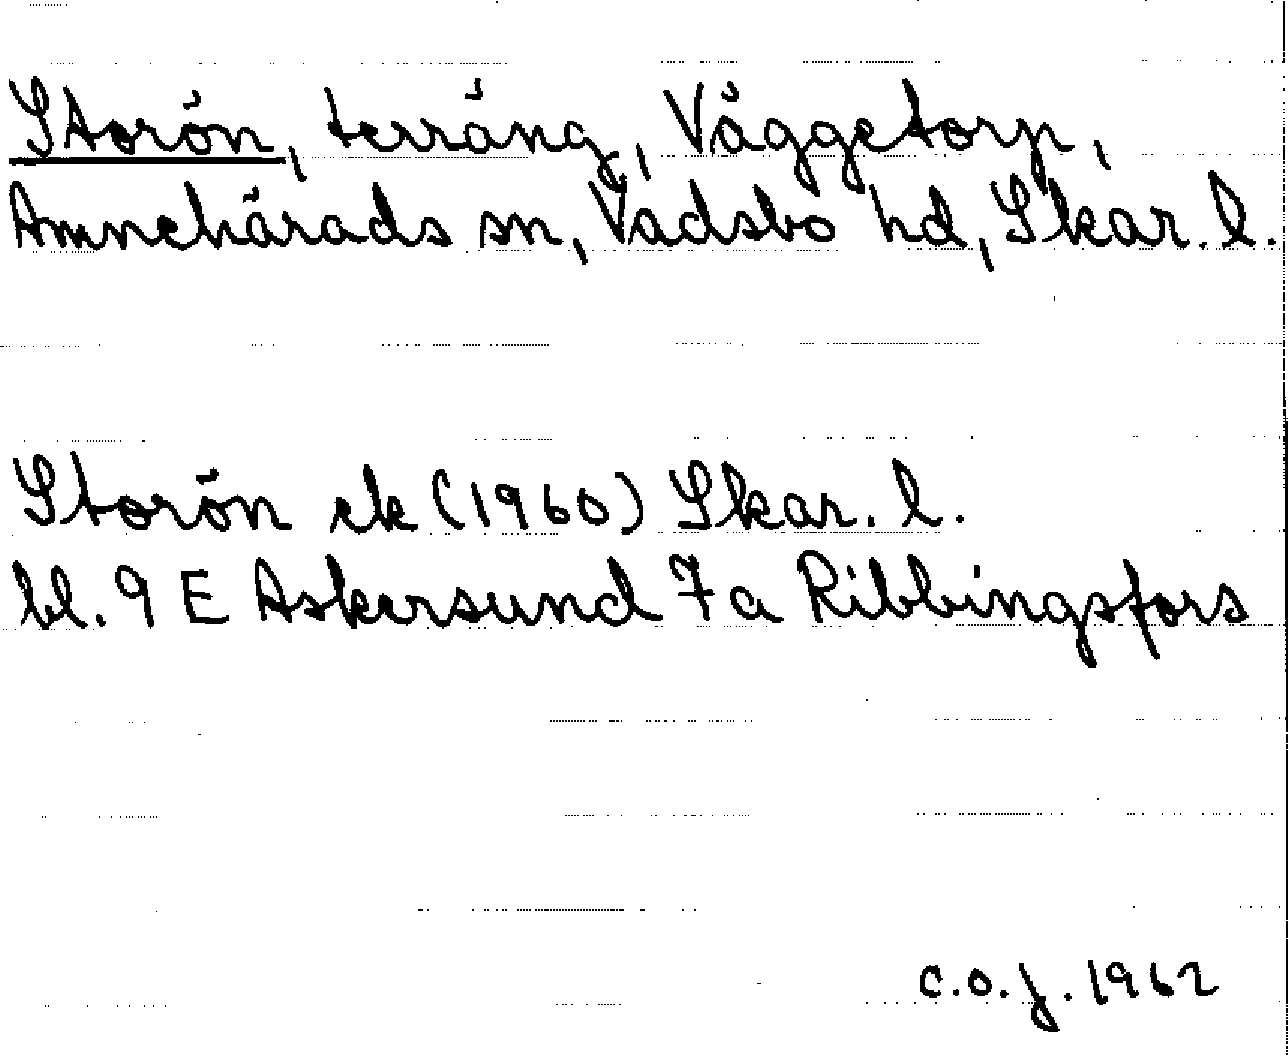 Storön, terräng, Väggetorp,
Amnehärads sn, Vadsbo hd, Skar. l.
Storön ek (1960) Skar. l.
bl. 9 E Askersund 7a Ribbingsfors
C.O.J. 1962